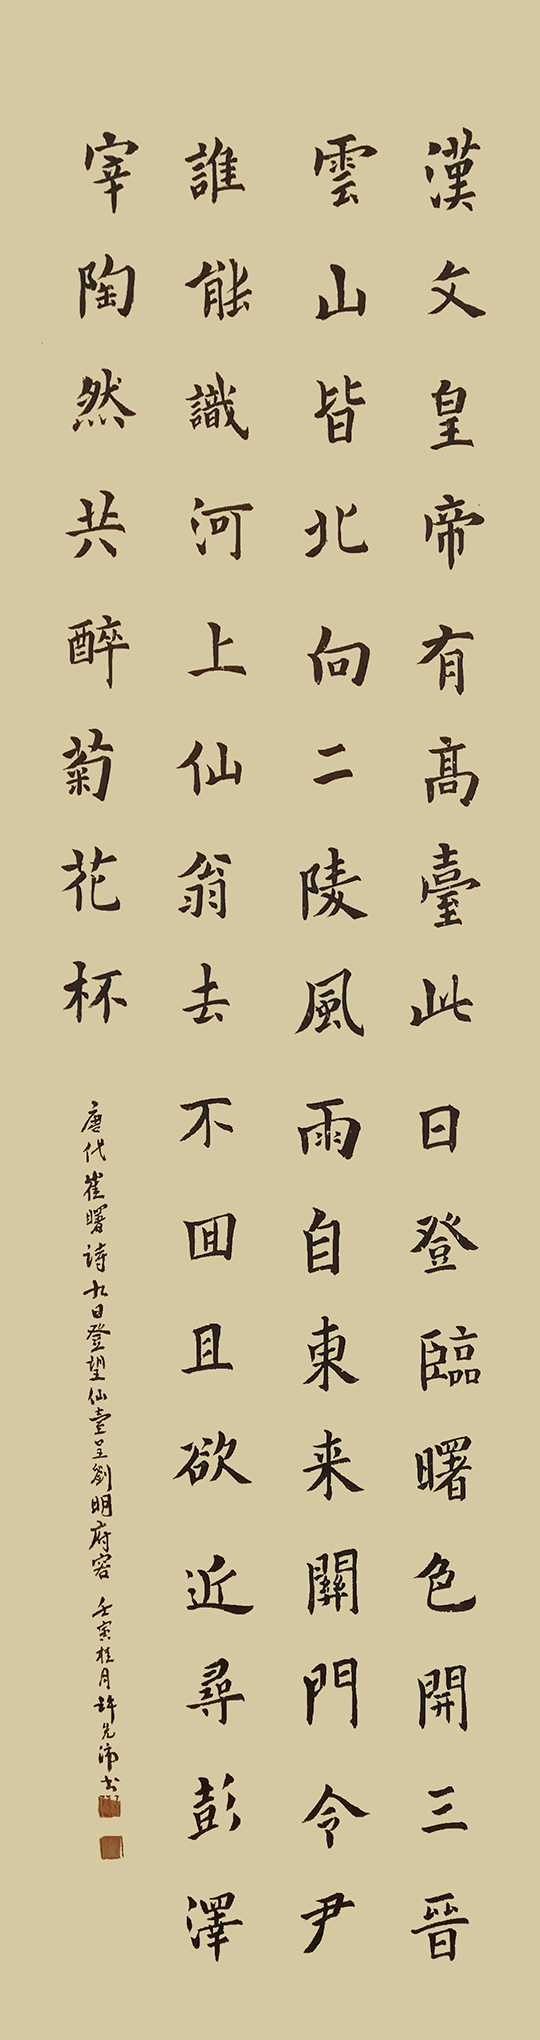 漢文皇帝有高臺此日登臨曙色開三晉
雲山皆北向二陵風雨自東来關門令尹
誰能識河上仙翁去不囬且欲近尋彭澤
宰陶然共醉菊花杯
唐代崔曙詩九日登望仙臺呈劉明府容 壬寅桂月許先沛书